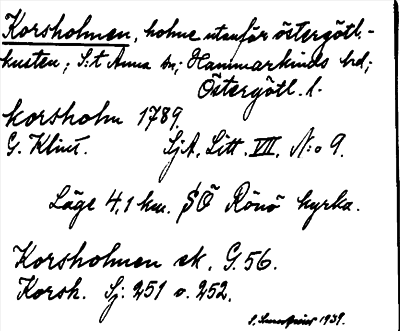 Korsholmen, holme utanför östergötl.-
kusten; S:t Anna sn; Hammarkinds hd;
Östergötl. l.
Korsholm 1789.
G. Klint. SjA. Litt. VII. N:o 9.
Läge 4,1 km. SÖ Rönö kyrka.
Korsholmen ek. G. 56.
Korsh. Sj: 251 o. 252.
1939.